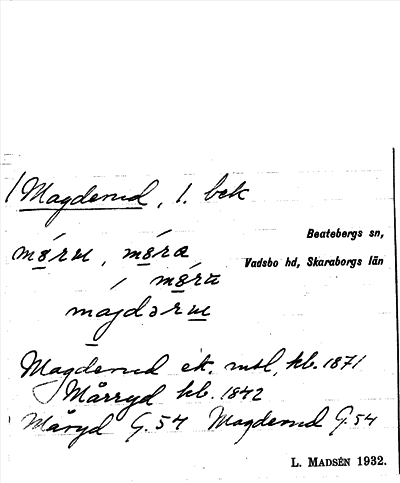 Magderud, 1. bek
Beatebergs sn,
Vadsbo hd, Skaraborgs län
Magderud ek. msl, kb. 1871
Mårryd kb. 1842
Måryd G. 54 Magderud G. 54
L. MADSÉN 1932.